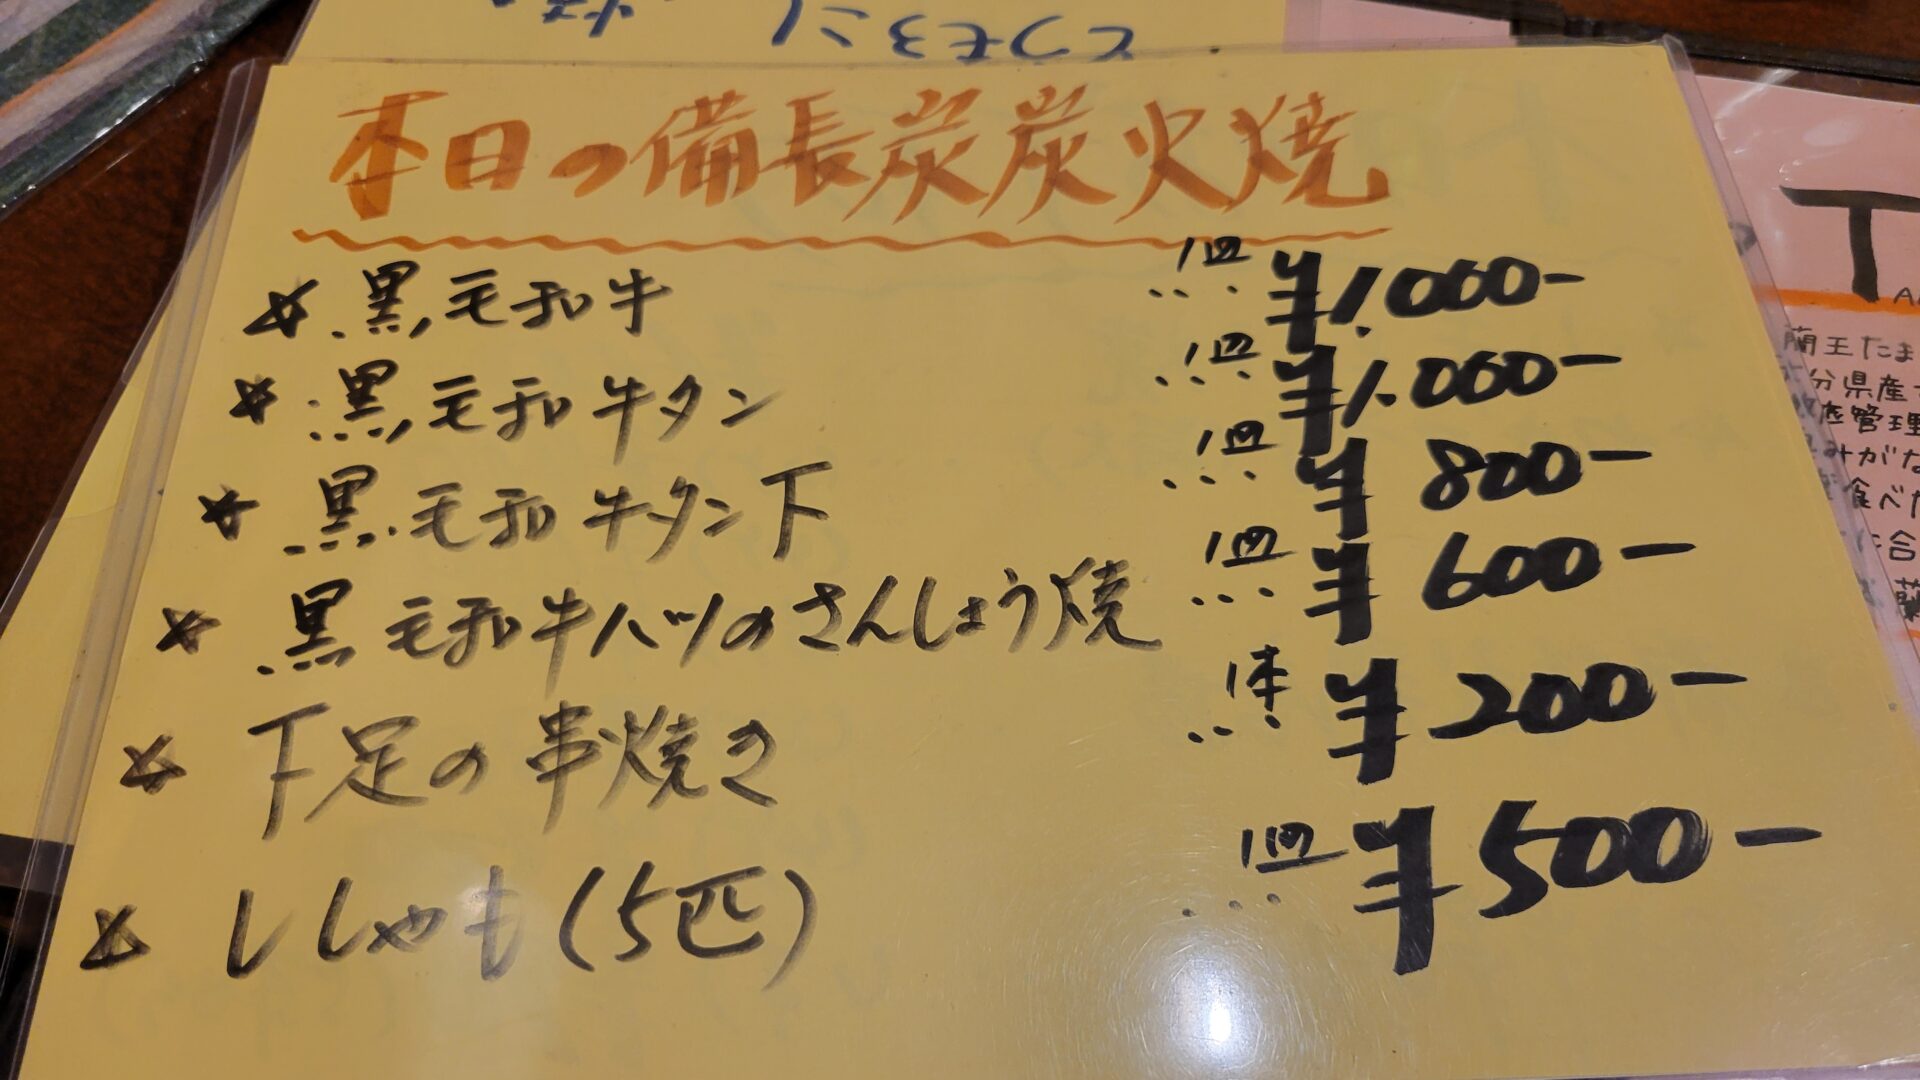 とうもろこし
本日の備長炭炭火焼
☆ 黒毛和牛 1皿 ... ¥1,000-
☆ 黒毛和牛タン 1皿 ... ¥1,000-
☆ 黒毛和牛タン下 1皿 ... ¥800-
☆ 黒毛和牛ハツのさんしょう焼 1皿 ... ¥600-
☆ 下足の串焼き 1本 ... ¥200-
☆ ししゃも(5匹) 1皿 ... ¥500-
T
蘭王たま
分県産
管理
みがな
食べた
合
蘭